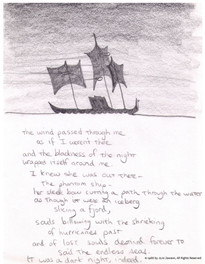 The wind passed through me
as if I weren't there
and the blackness of the night
wrapped itself around me
I knew she was out there -
the phantom ship -
her sleek bow cutting a path through the water
as though it were an iceberg
slicing a fjord,
sails billowing with the shrieking
of hurricanes past
and of lost souls destined forever to
sail the endless seas.
It was a dark night, indeed.